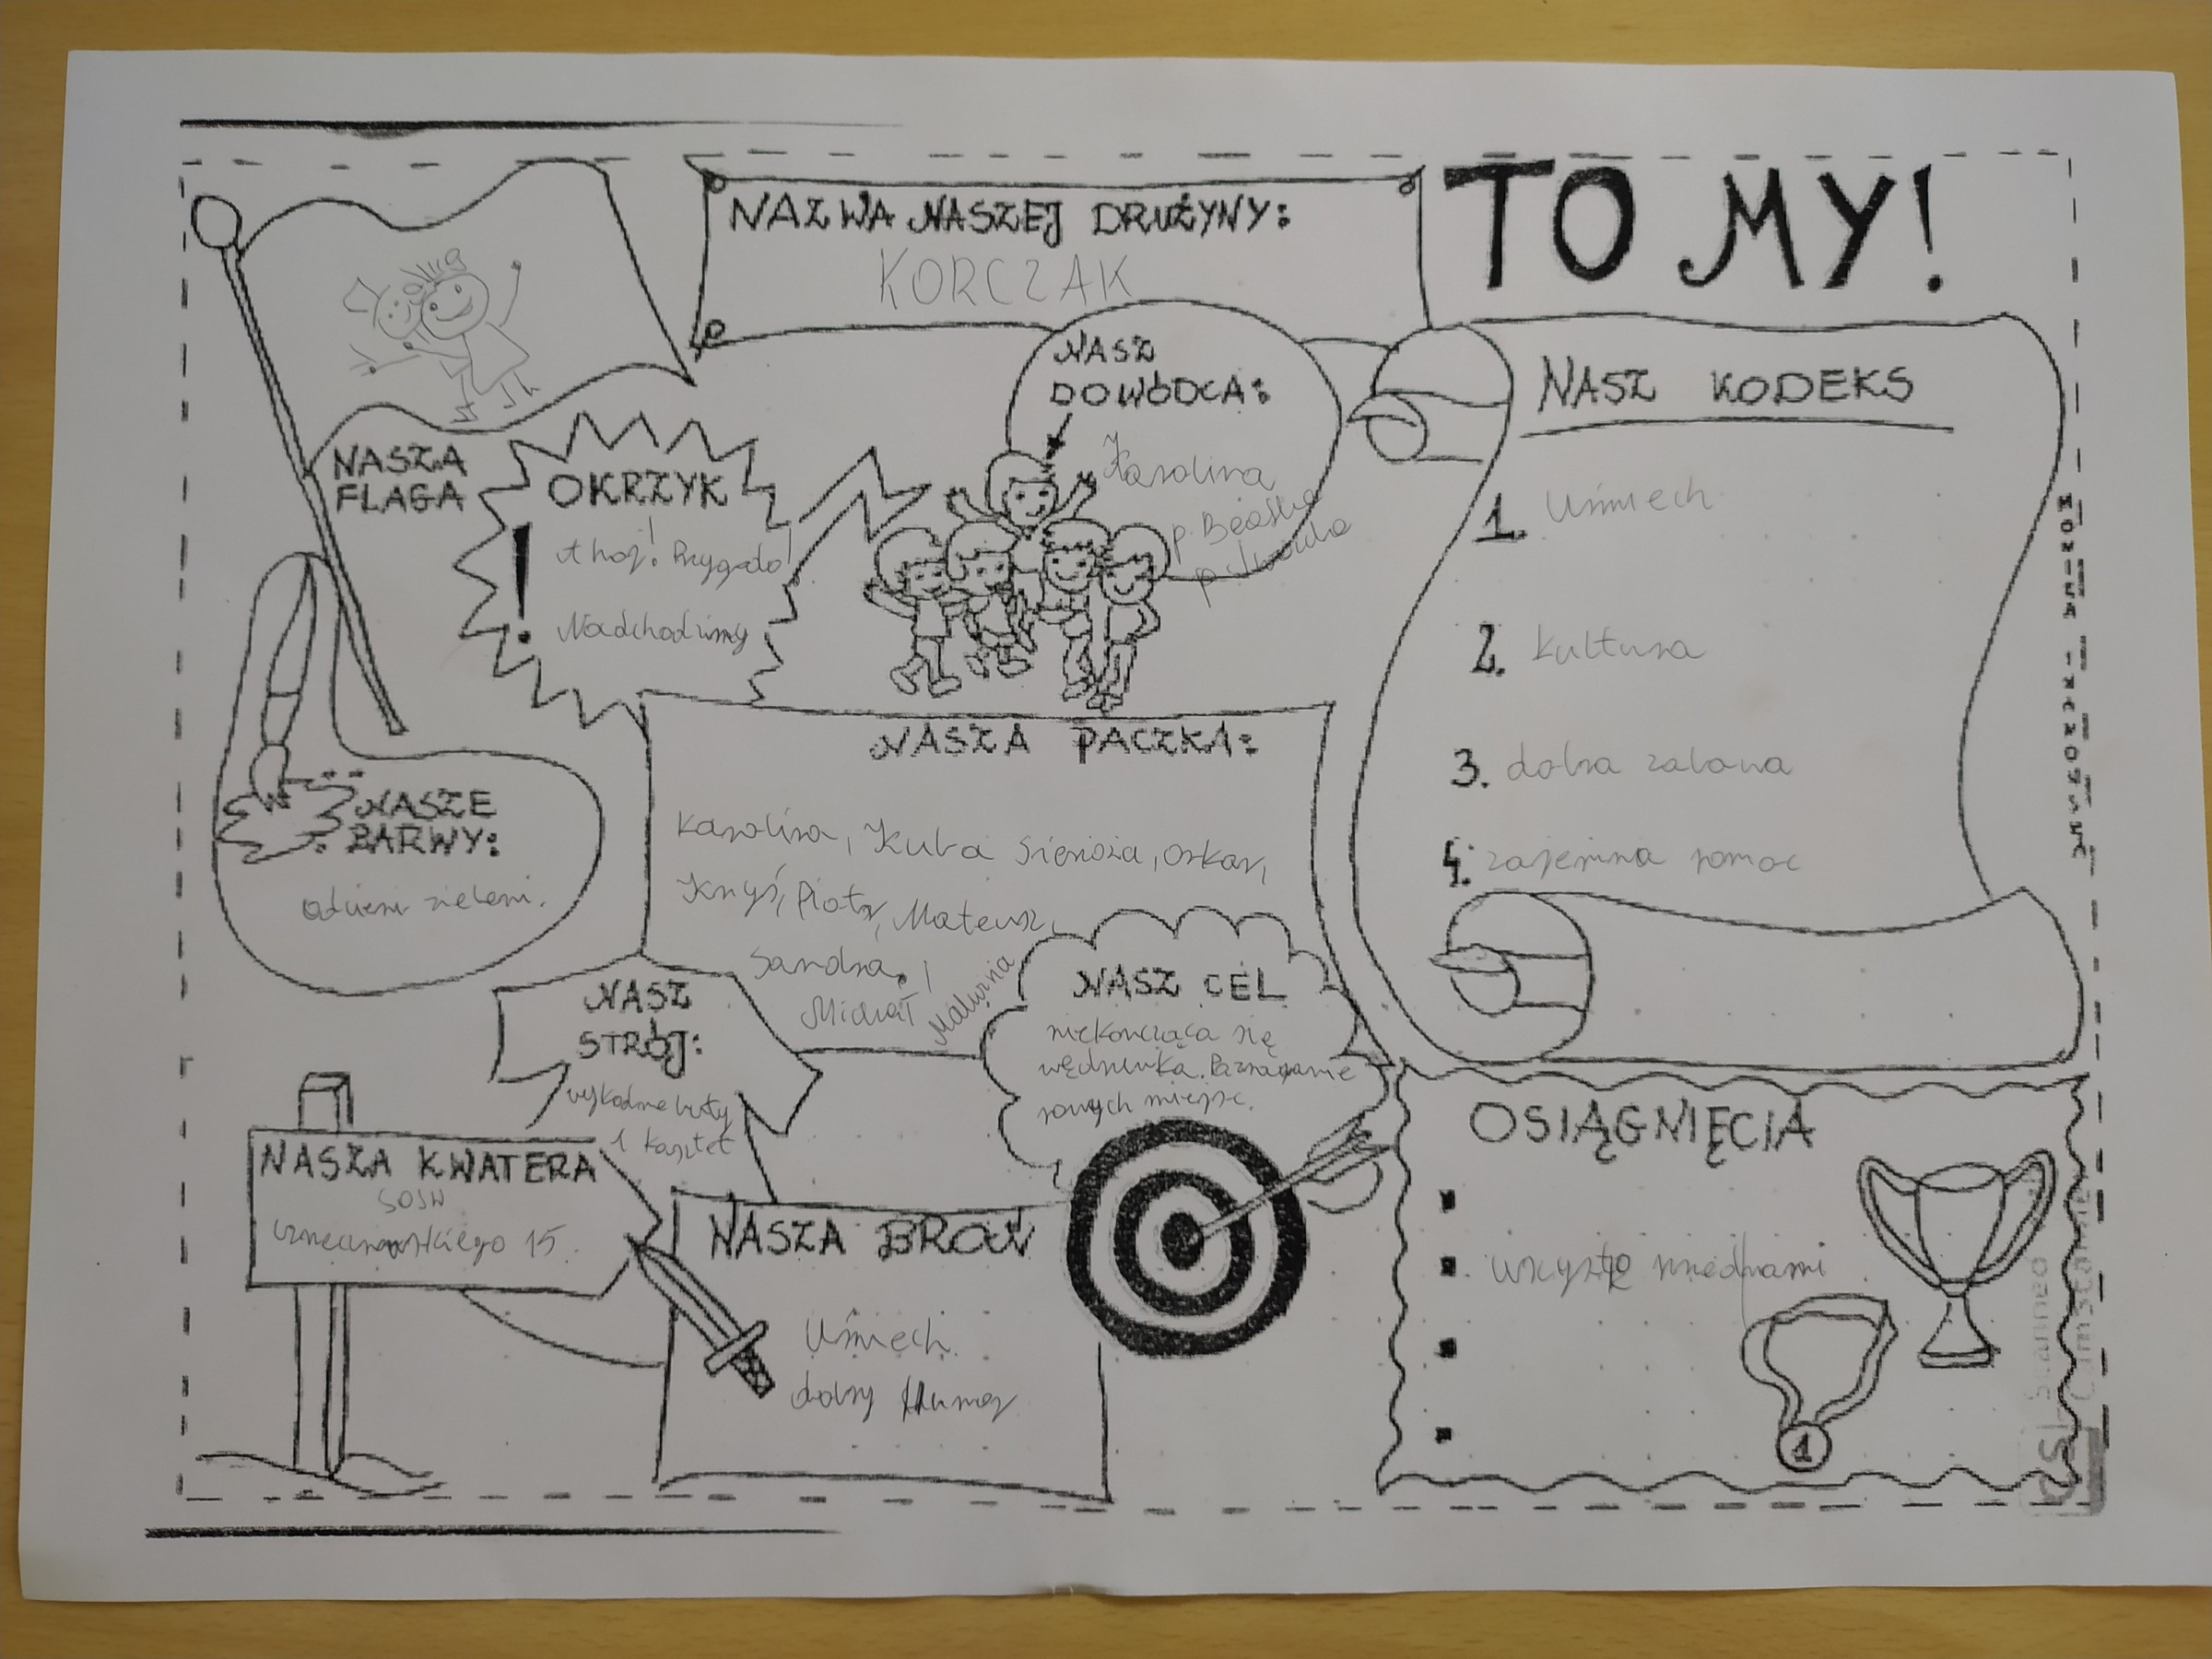 NAZWA NASZEJ DRUŻYNY:
KORCZAK
TO MY!
NASZA
FLAGA
OKRZYK
Ahoj! Przygodo!
Nadchodzimy
NASZ
DOWÓDCA:
Karolina
p. Beatka
p. Iwonka
NASZ KODEKS
1. Uśmiech
2. Kultura
3. dobra zabawa
4. zajemna pomoc
NASZE
BARWY:
odcieni zieleni.
NASZA PACZKA:
Karolina, Kuba Sienoza, Oskar,
Krzyś, Piotr, Mateusz,
Sandra, Michał, Malwina
NASZ
STRÓJ:
wykodne buty
1 kasztet
NASZ CEL
niekończąca się
wędrówka. Poznawanie
nowych miejsc.
NASZA KWATERA
SOSW
15.
NASZA BROŃ
Uśmiech
dobry Humor
OSIĄGNIĘCIA
1